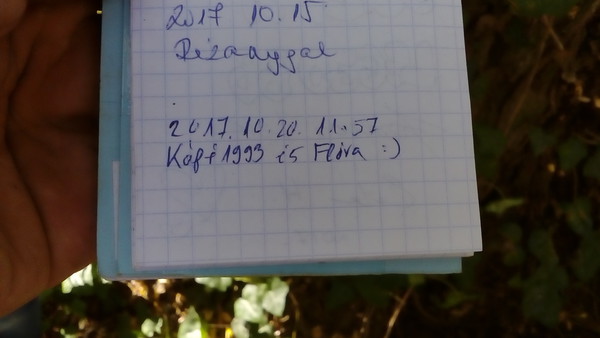 2017 10.15
Rézanygal
2017.10.20. 11:57
Káfi1993 és Flóra :)